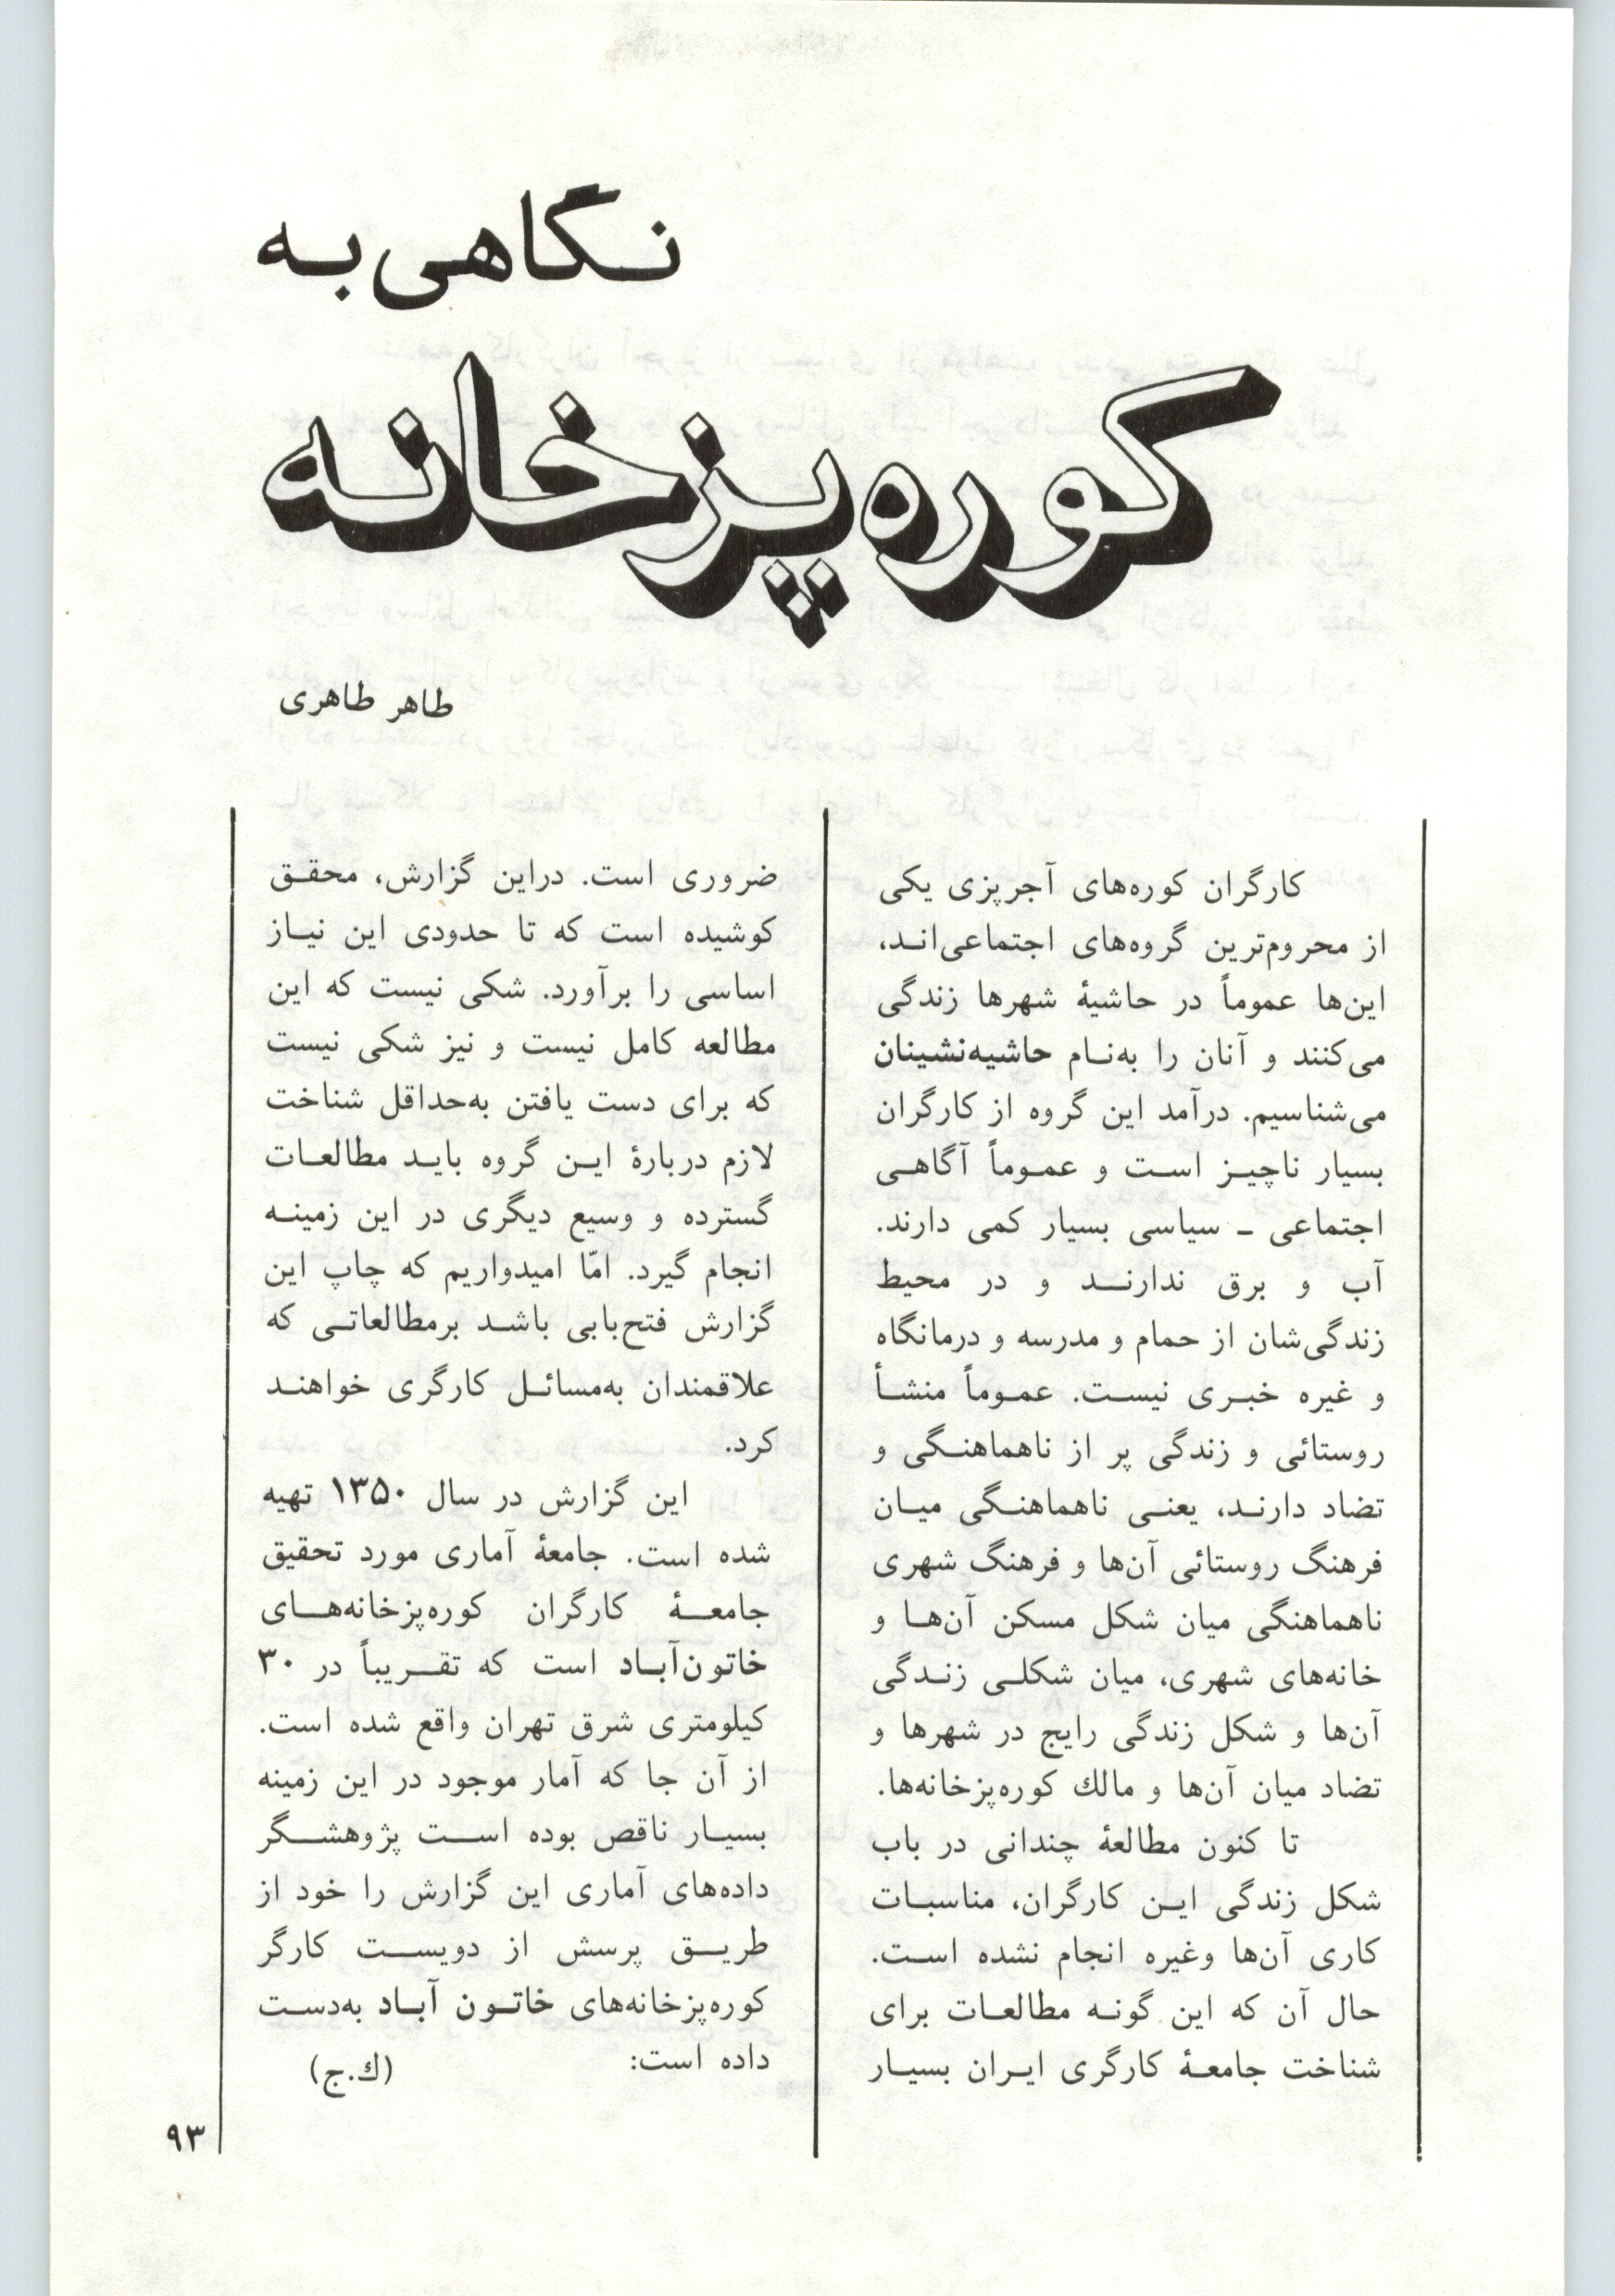 نگاهی به
کوره‌پزخانه
طاهر طاهری
کارگران کوره‌های آجرپزی یکی
از محروم‌ترین گروه‌های اجتماعی‌اند،
این‌ها عموماً در حاشیهٔ شهرها زندگی
می‌کنند و آنان را به‌نام حاشیه‌نشینان
می‌شناسیم. درآمد این گروه از کارگران
بسیار ناچیز است و عموماً آگاهی
اجتماعی ـ سیاسی بسیار کمی دارند.
آب و برق ندارند و در محیط
زندگی‌شان از حمام و مدرسه و درمانگاه
و غیره خبری نیست. عموماً منشأ
روستائی و زندگی پر از ناهماهنگی و
تضاد دارند، یعنی ناهماهنگی میان
فرهنگ روستائی آن‌ها و فرهنگ شهری
ناهماهنگی میان شکل مسکن آن‌ها و
خانه‌های شهری، میان شکلی زندگی
آن‌ها و شکل زندگی رایج در شهرها و
تضاد میان آن‌ها و مالك کوره‌پزخانه‌ها.
تا کنون مطالعهٔ چندانی در باب
شکل زندگی این کارگران، مناسبات
کاری آن‌ها وغیره انجام نشده است.
حال آن که این گونه مطالعات برای
شناخت جامعهٔ کارگری ایران بسیار
ضروری است. دراین گزارش، محقق
کوشیده است که تا حدودی این نیاز
اساسی را برآورد. شکی نیست که این
مطالعه کامل نیست و نیز شکی نیست
که برای دست یافتن به‌حداقل شناخت
لازم دربارهٔ این گروه باید مطالعات
گسترده و وسیع دیگری در این زمینه
انجام گیرد. امّا امیدواریم که چاپ این
گزارش فتح‌بابی باشد برمطالعاتی که
علاقمندان به‌مسائل کارگری خواهند
کرد.
این گزارش در سال ۱۳۵۰ تهیه
شده است. جامعهٔ آماری مورد تحقیق
جامعهٔ کارگران کوره‌پزخانه‌های
خاتون‌آباد است که تقریباً در ۳۰
کیلومتری شرق تهران واقع شده است.
از آن جا که آمار موجود در این زمینه
بسیار ناقص بوده است پژوهشگر
داده‌های آماری این گزارش را خود از
طریق پرسش از دویست کارگر
کوره‌پزخانه‌های خاتون آباد به‌دست
داده است: (ك.ج)
۹۳